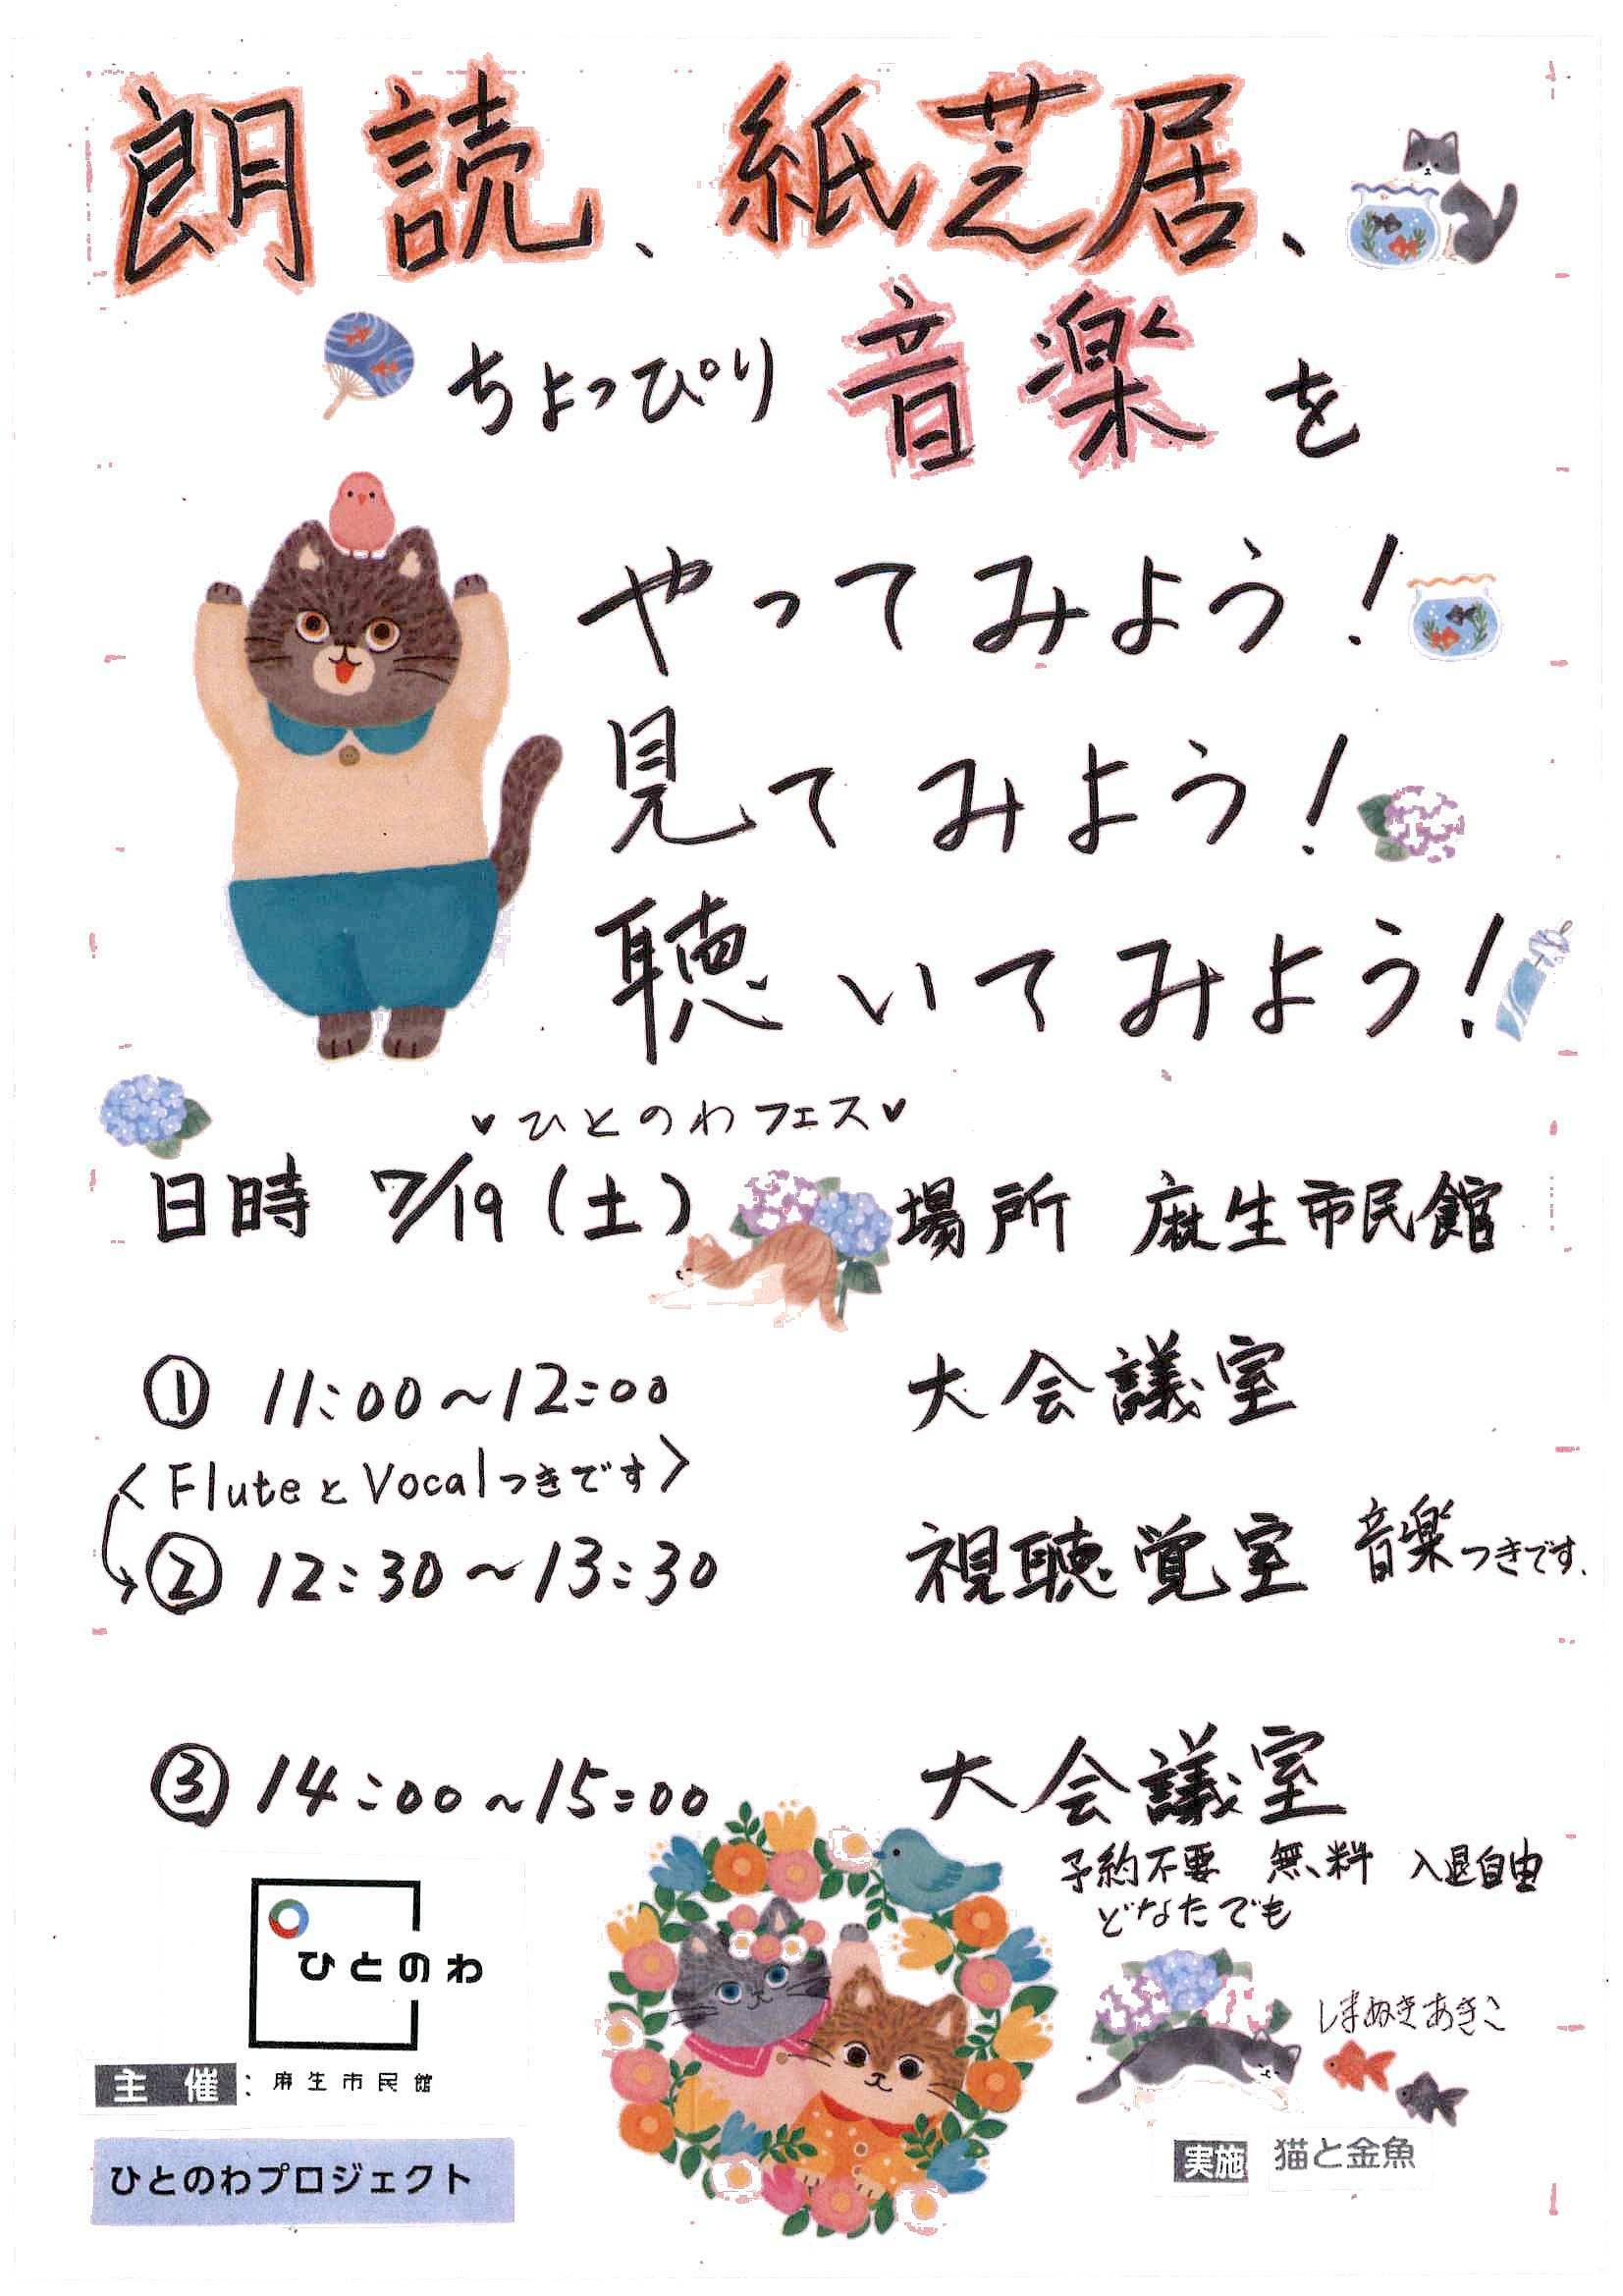 朗読、紙芝居、
ちょっぴり 音楽を
やってみよう!
見てみよう!
聴いてみよう!
♥ひとのわフェス♥
日時 7/19(土) 場所 麻生市民館
① 11:00~12:00 大会議室
<FluteとVocalつきです>
② 12:30~13:30 視聴覚室 音楽つきです、
③ 14:00~15:00 大会議室
予約不要 無料 入退自由
どなたでも
ひとのわ
しまぬきあきこ
主催:麻生市民館
ひとのわプロジェクト
実施 猫と金魚